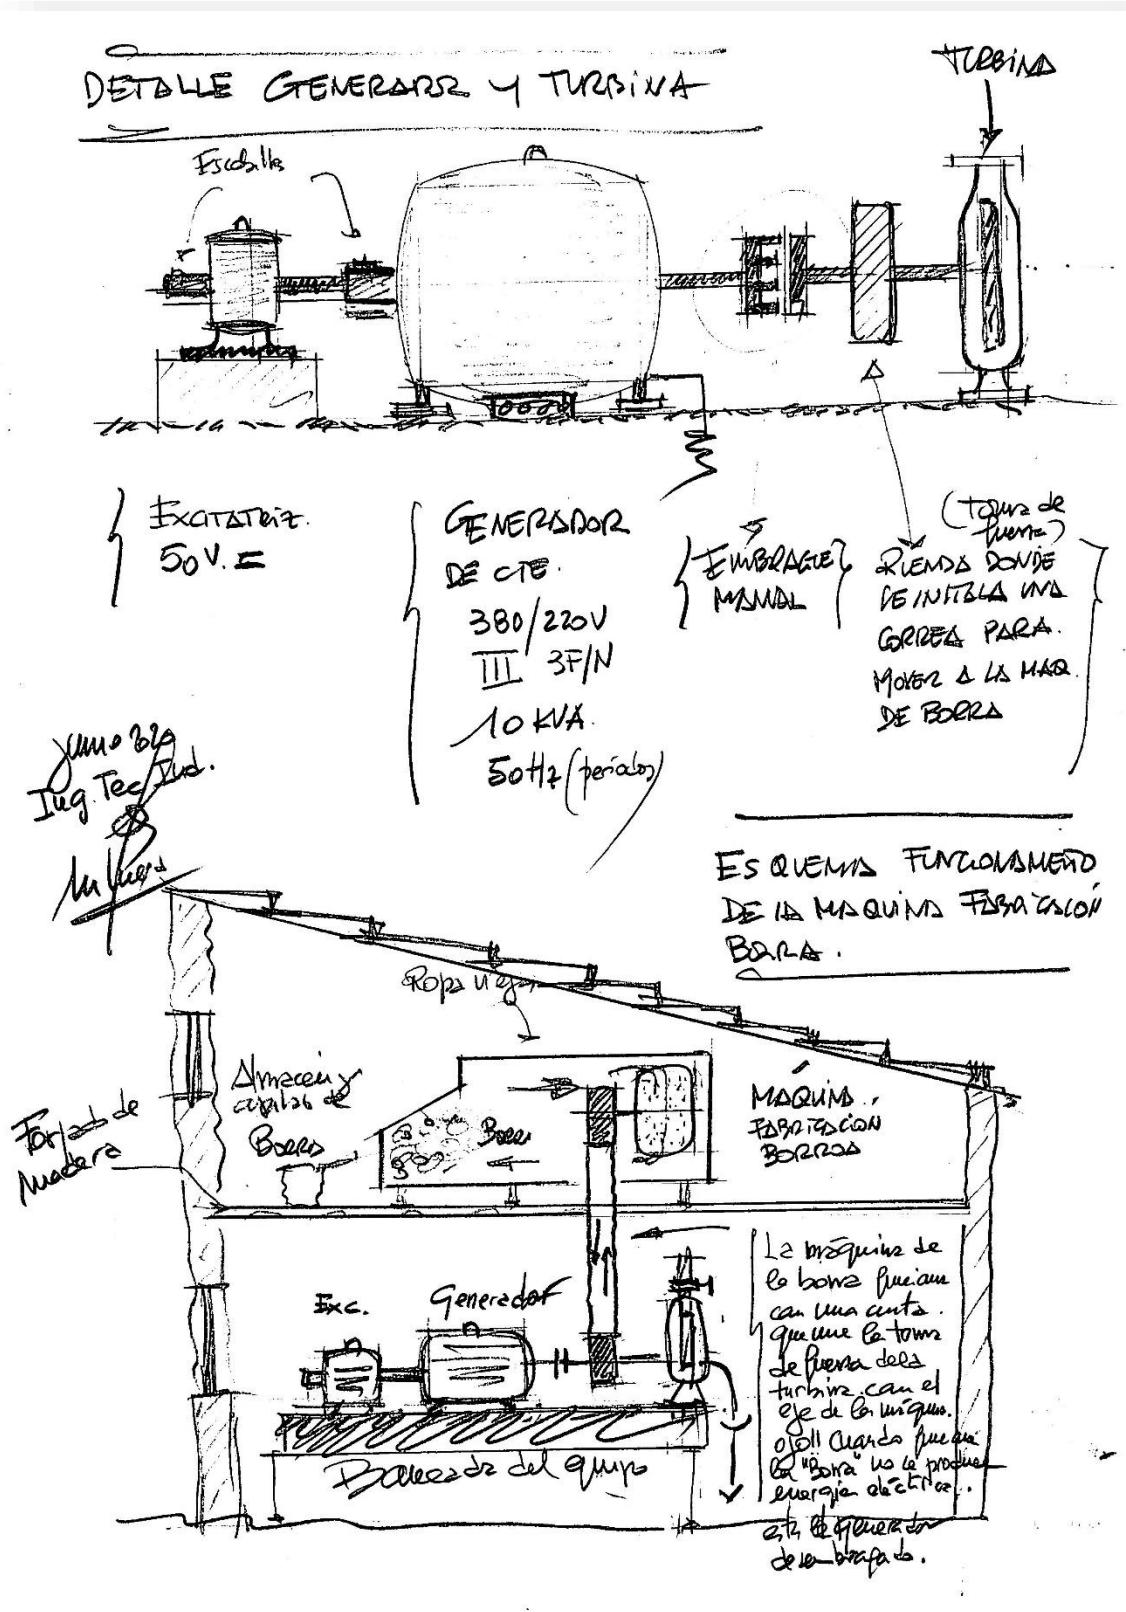 DETALLE GENERADOR Y TURBINA
TURBINA
Escobillas
EXCITATRIZ.
50 V. =
GENERADOR
DE CTE.
380/220V
III 3F/N
10 KVA.
50Hz (periodos)
EMBRAGUE
MANUAL
(toma de
fuerza)
RUEDA DONDE
SE INSTALA UNA
CORREA PARA.
MOVER A LA MAQ.
DE BORRA
Ing. Tec. Ind.
ESQUEMA FUNCIONAMIENTO
DE LA MAQUINA FABRICACIÓN
BORRA.
Ropa vieja
Almacén y
de
BORRA
Borra
MAQUINA.
FABRICACION
BORROA
Forjado de
madera
Exc.
Generador
Bancada del equipo
La máquina de
la borra funciona
con una cinta.
que une la toma
de fuerza de la
turbina con el
eje de la máquina.
ojo!! Cuando funciona
la "Borra" no se produce
energía eléctrica..
está el generador
desembragado.